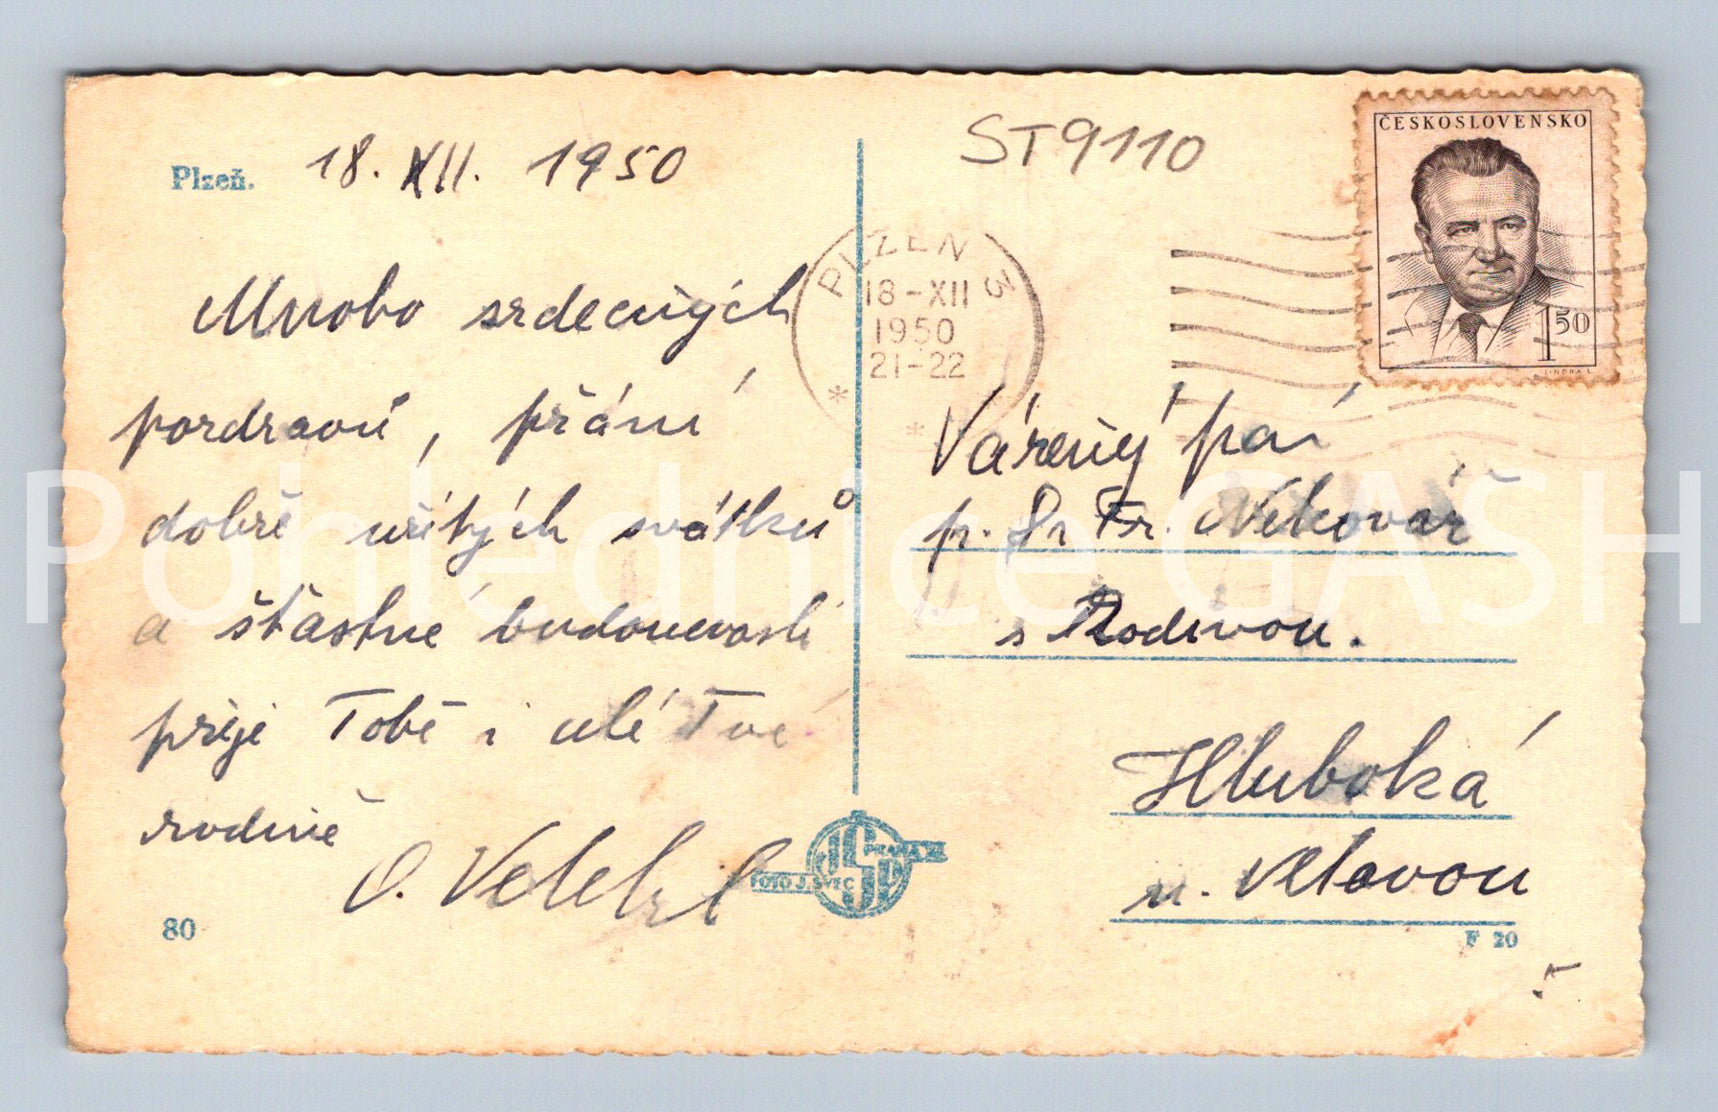 Plzeň. 18. XII. 1950
ST9110
ČESKOSLOVENSKO
1 50
PLZEŇ 3
18-XII
1950
21-22
Mnoho srdečných
pozdravů, přání
dobře užitých svátků
a šťastné budoucnosti
přeje Tobě i celé Tvé
rodině
O.
Vážený pan
p. Dr Fr. Nekovář
s Rodinou.
Hluboká
n. Vltavou
FOTO J. ŠVEC
PRAHA
80
F 20
Pohlednice GASH